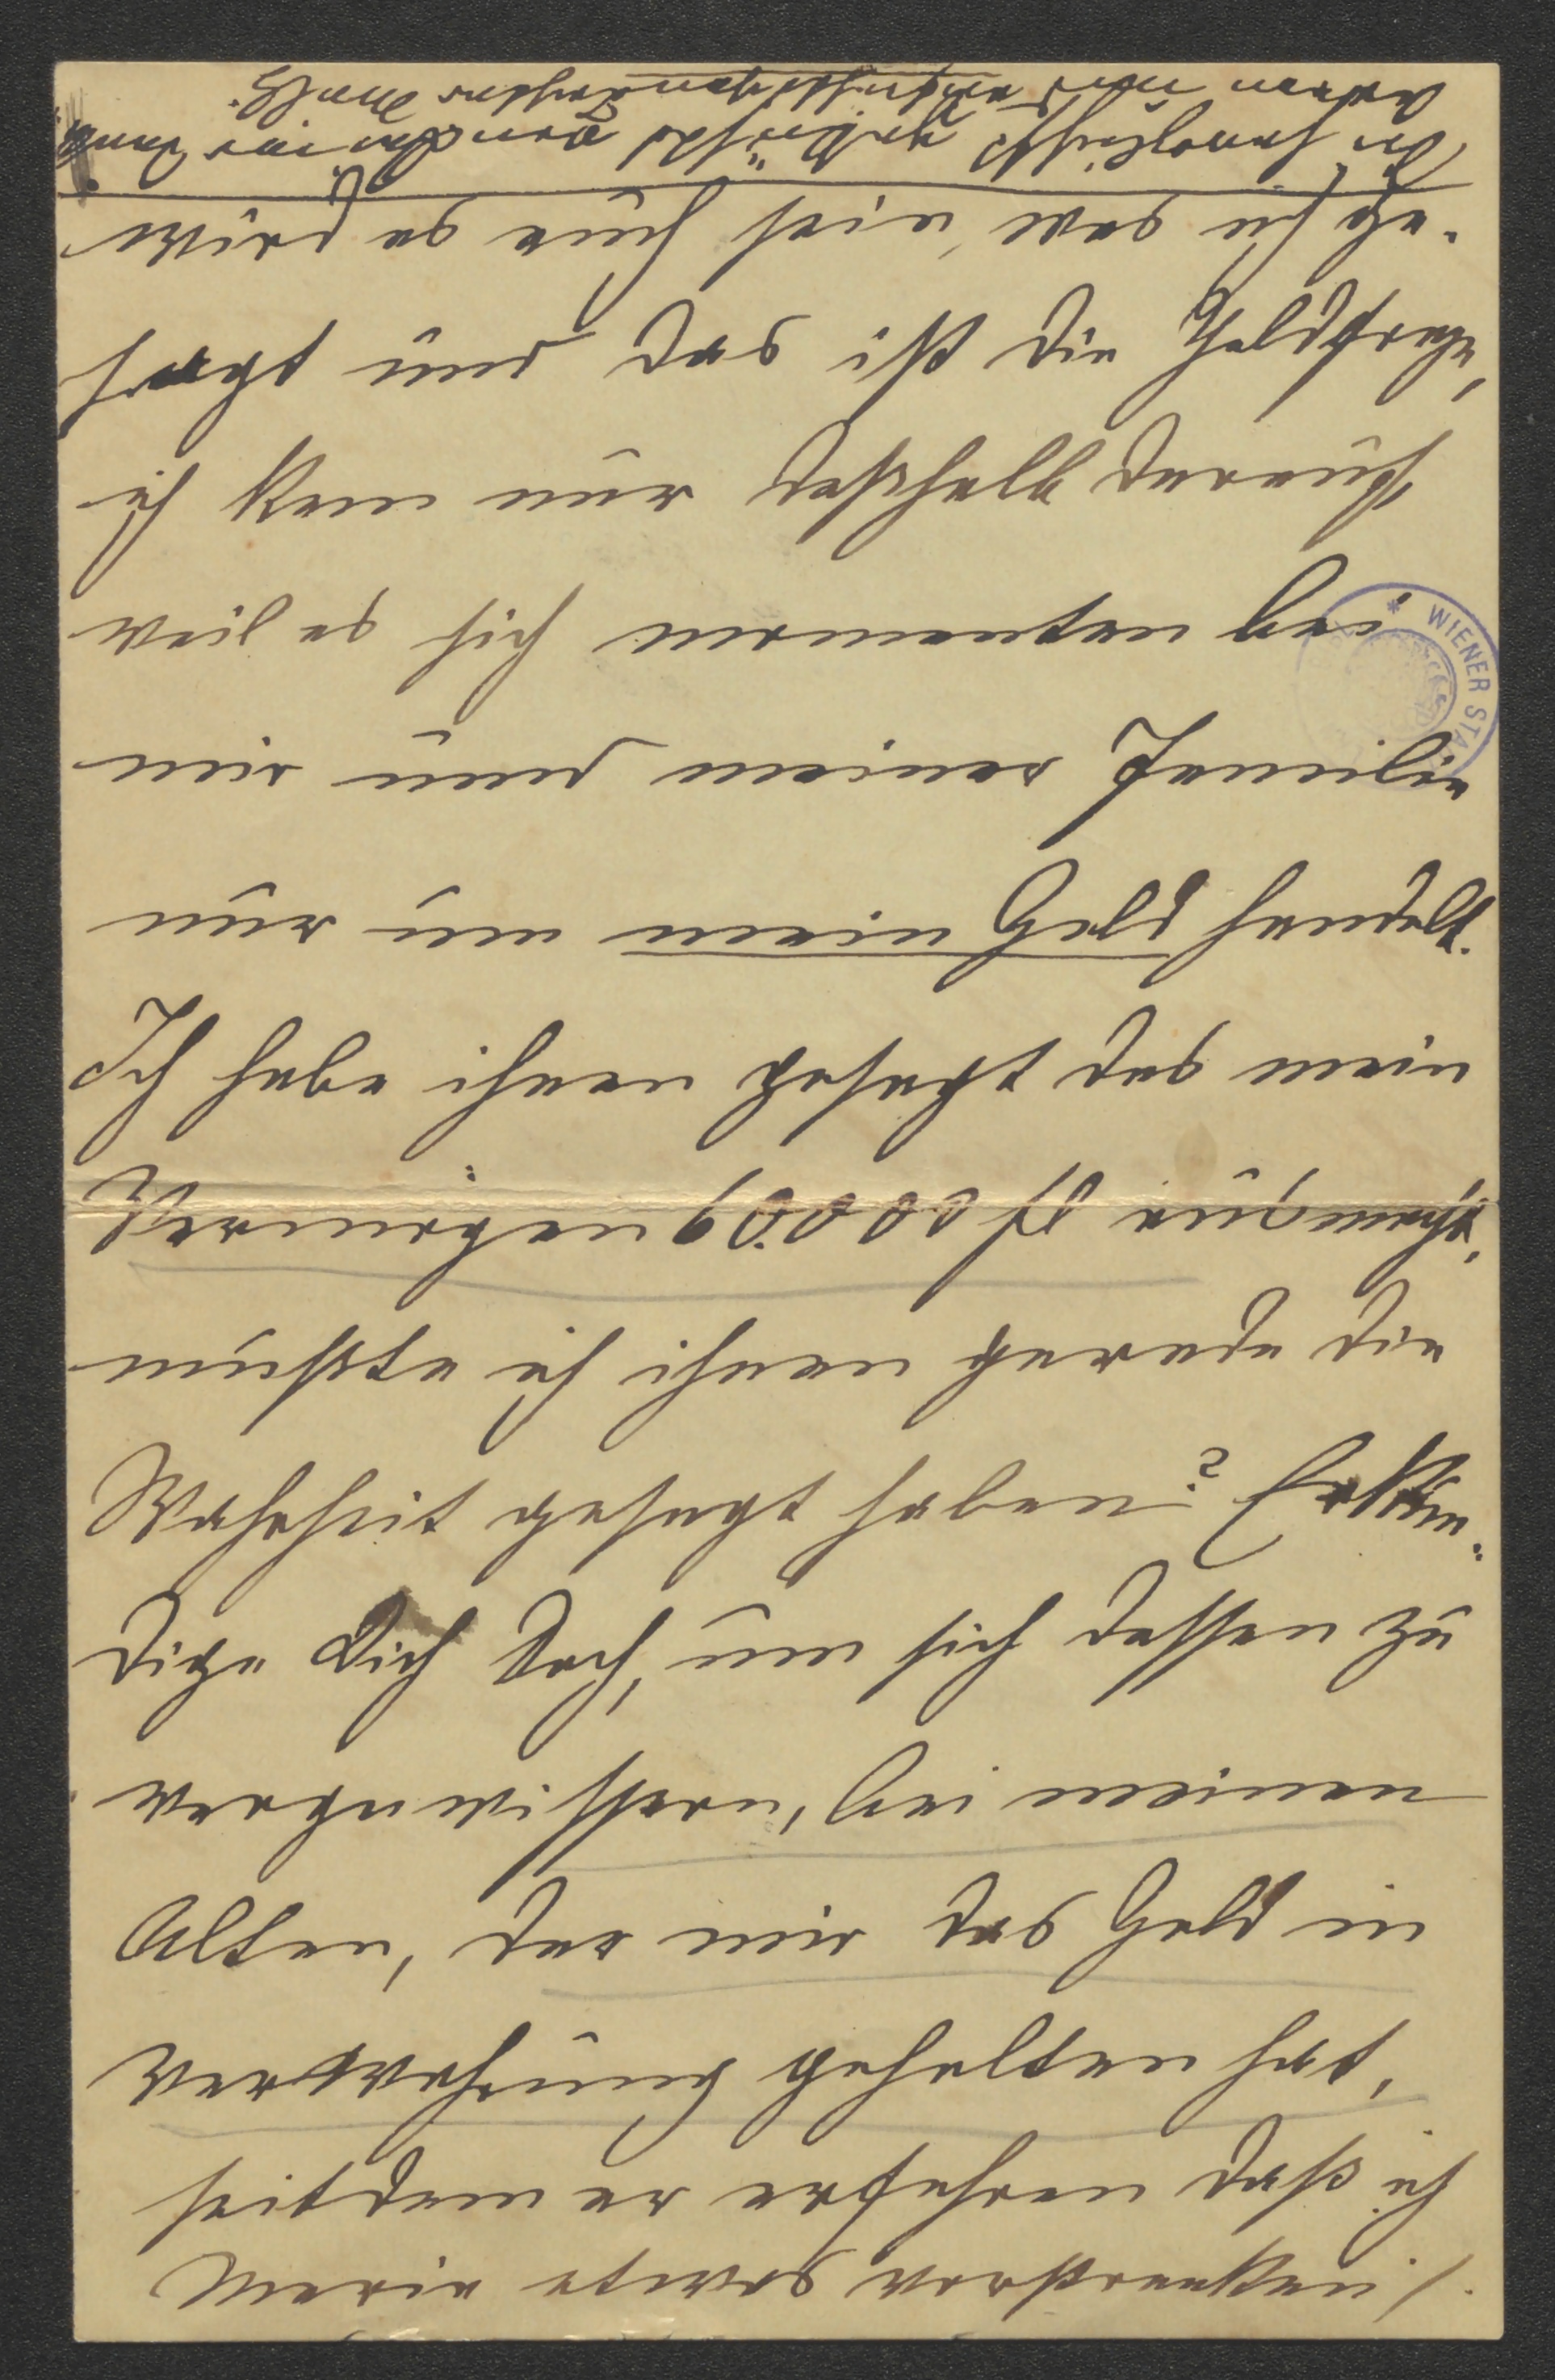 würd es auch sein, was ich ge-
sagt und das ist die Geldfrage,
ich kam nur deßhalb darauf
weil es sich momentan bei
mir und meiner Familie
nur um mein Geld handelt.
Ich habe ihnen gesagt das mein
Vermögen 60.000 fl ausmacht,
mußte ich ihnen gerade die
Wahrheit gesagt haben? Erkun-
dige Dich doch, um sich dessen zu
vergewissern, bei meinen
Alten, der mir das Geld in
Verwahrung gehalten hat,
seitdem er erfahren daß ich
Marie etwas
WIENER STA